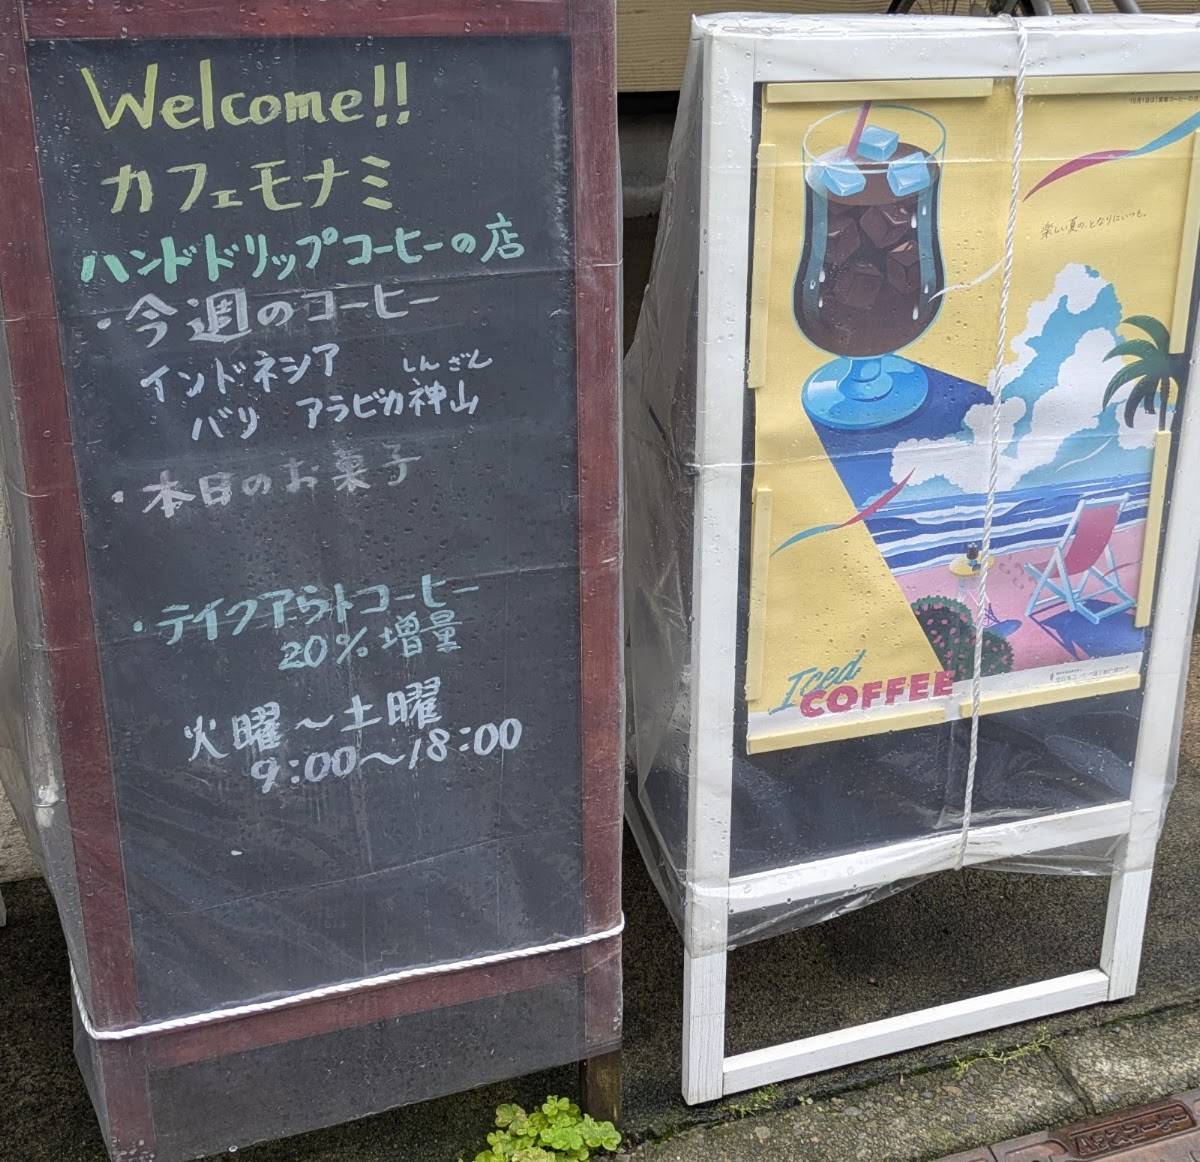 Welcome!!
カフェモナミ
ハンドドリップコーヒーの店
・今週のコーヒー
インドネシア
バリ アラビカ神山
しんざん
・本日のお菓子
・テイクアウトコーヒー
20%増量
火曜～土曜
9:00～18:00
楽しい夏の、となりにいつも。
Iced
COFFEE